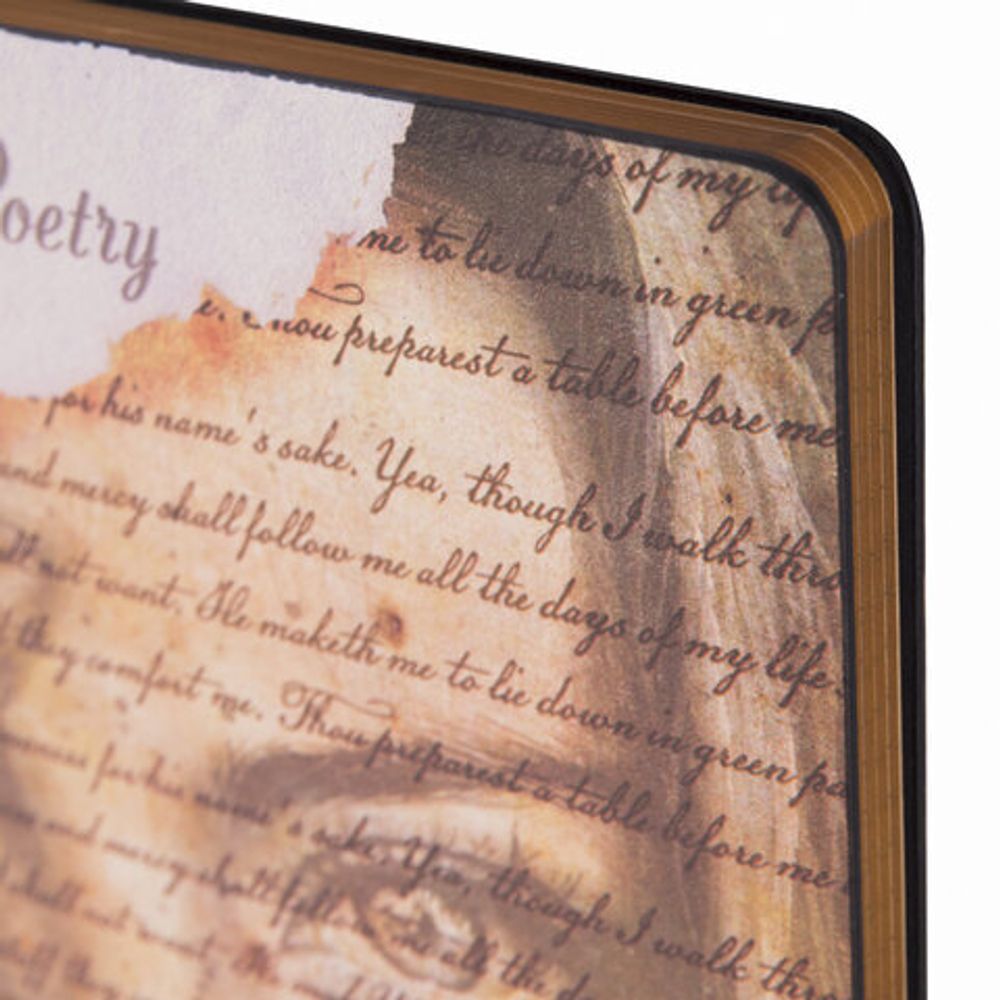 Poetry
days of my
me to lie down in green
thou preparest a table before me
for his name's sake. Yea, though I walk thro
and mercy shall follow me all the days of my life.
not want. He maketh me to lie down in green pa
they comfort me. Thou preparest a table before me
for his name's sake. Yea, though I walk thro
and mercy shall follow me all the da
shall not want.